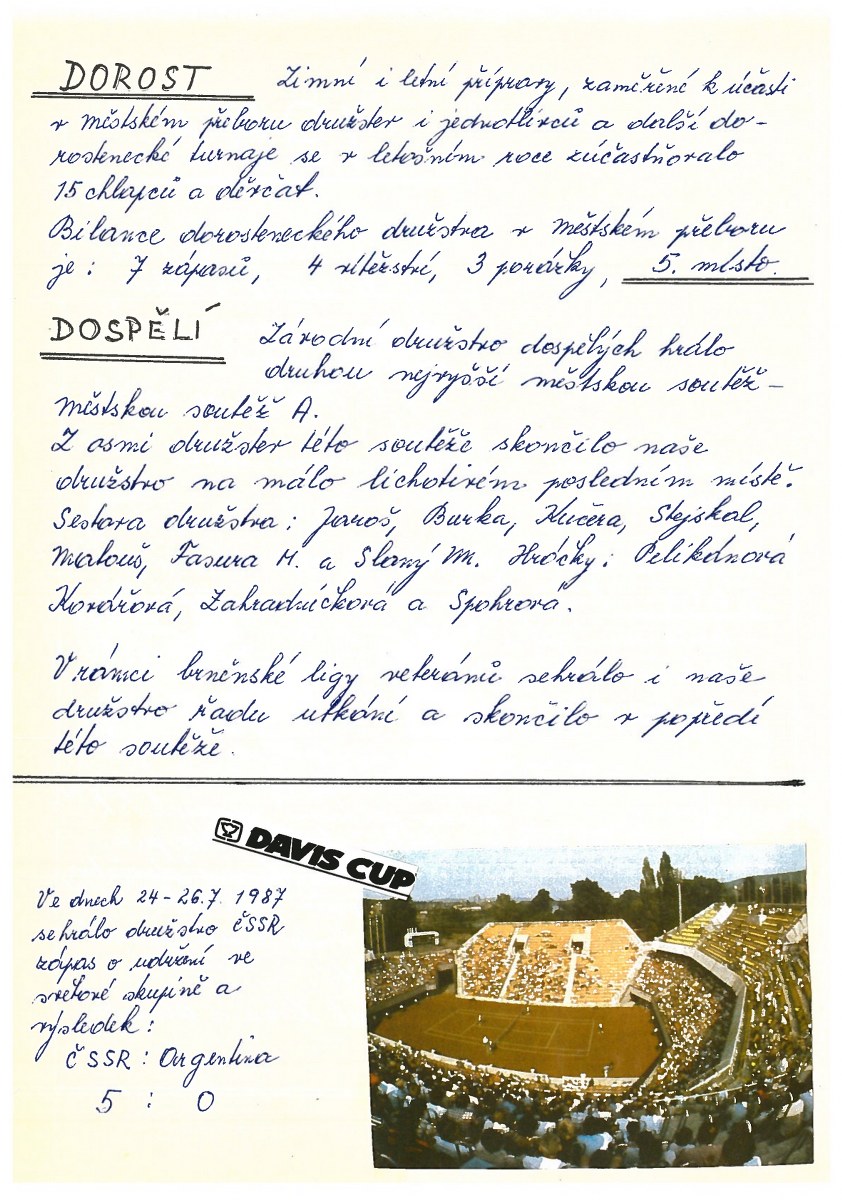 DOROST Zimní i letní přípravy, zaměřené k účasti
v městském přeboru družstev i jednotlivců a další do-
rostenecké turnaje se v letošním roce zúčastňovalo
15 chlapců a děvčat.
Bilance dorosteneckého družstva v městském přeboru
je: 7 zápasů, 4 vítězství, 3 porážky, 5. místo.
DOSPĚLÍ Závodní družstvo dospělých hrálo
druhou nejvyšší městskou soutěž -
městskou soutěž A.
Z osmi družstev této soutěže skončilo naše
družstvo na málo lichotivém posledním místě.
Sestava družstva: Jaroš, Burka, Kučera, Stejskal,
Matouš, Fasura M. a Slaný M. Hráčky: Pelikánová
Kovářová, Zahradníčková a Spohrová.
V rámci brněnské ligy veteránů sehrálo i naše
družstvo řadu utkání a skončilo v popředí
této soutěže.
DAVIS CUP
Ve dnech 24-26.7. 1987
sehrálo družstvo ČSSR
zápas o udržení ve
světové skupině a
výsledek:
ČSSR : Argentina
5 : 0